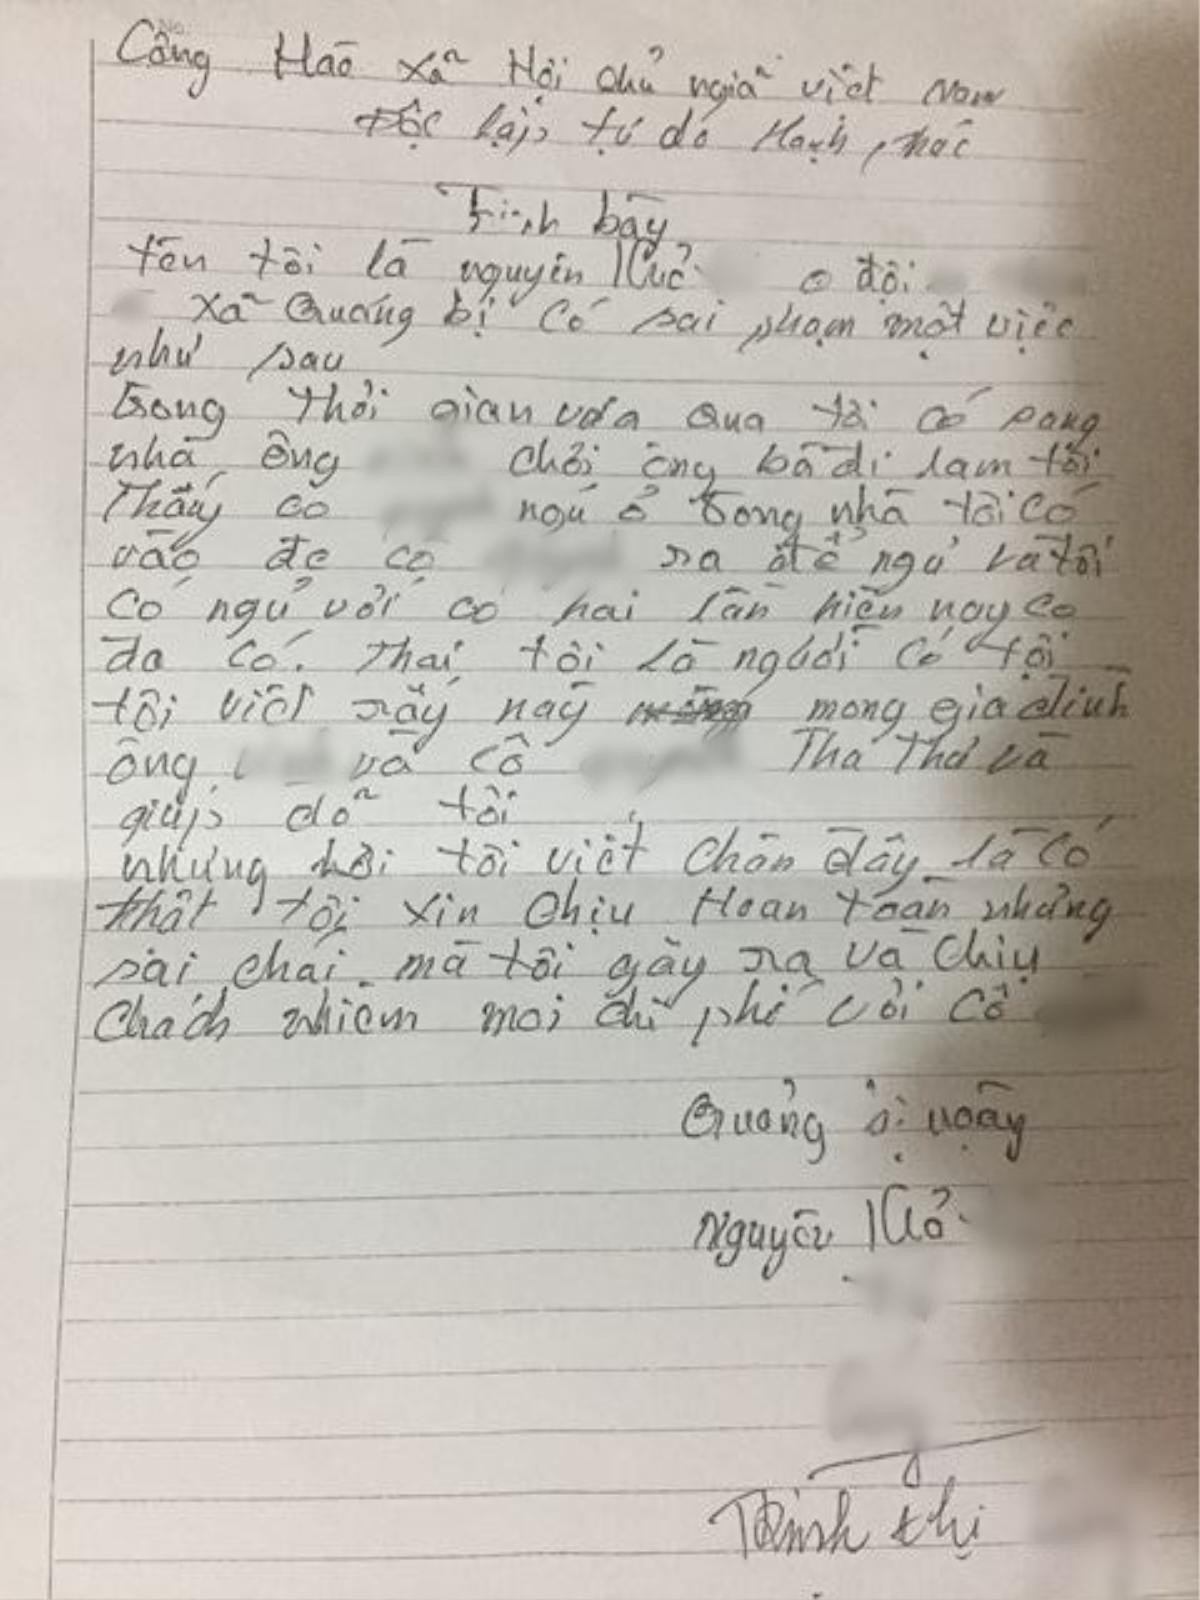 Công Hao xã Hội chủ ngiã việt Nam
Độc lập tự do Hạnh phúc
Trình bầy
tên tôi là nguyên Khở ở đội
xã Quảng bị có sai phạm một việc
như sau
trong thời gian vưa qua tôi có sang
nhà ông chơi ông bà đi lam tôi
thấy cô ngủ ở trong nhà tôi có
vào đe cô ra để ngủ và tôi
có ngủ với cô hai lần hiện nay cô
đa có thai tôi là người có tội
tôi viết rấy này mong gia đình
ông và cô Tha Thứ và
giúp đỡ tôi
nhưng hời tôi viết chên đây là có
thật tôi xin chịu Hoan toàn nhưng
sai chái mà tôi gây ra và chịu
chách nhiêm mọi chi phí với cô
Quảng bị ngày
Nguyên Khở
Trịnh thị